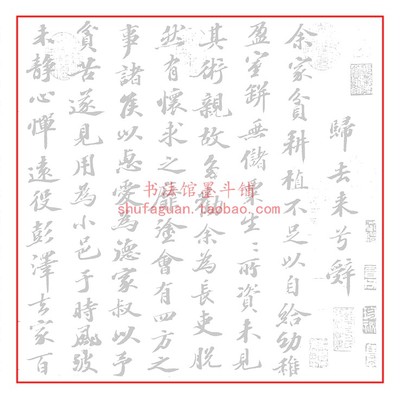 歸去来兮辭
余家貧耕植不足以自給幼稚
盈室缾無儲粟生〻所資未見
其術親故多勸余為長吏脱
然有懷求之靡塗會有四方之
事諸侯以惠愛為德家叔以予
貧苦遂見用為小邑于時風波
未静心憚遠役彭澤去家百
书法馆墨斗饼
shufaguan.taobao.com